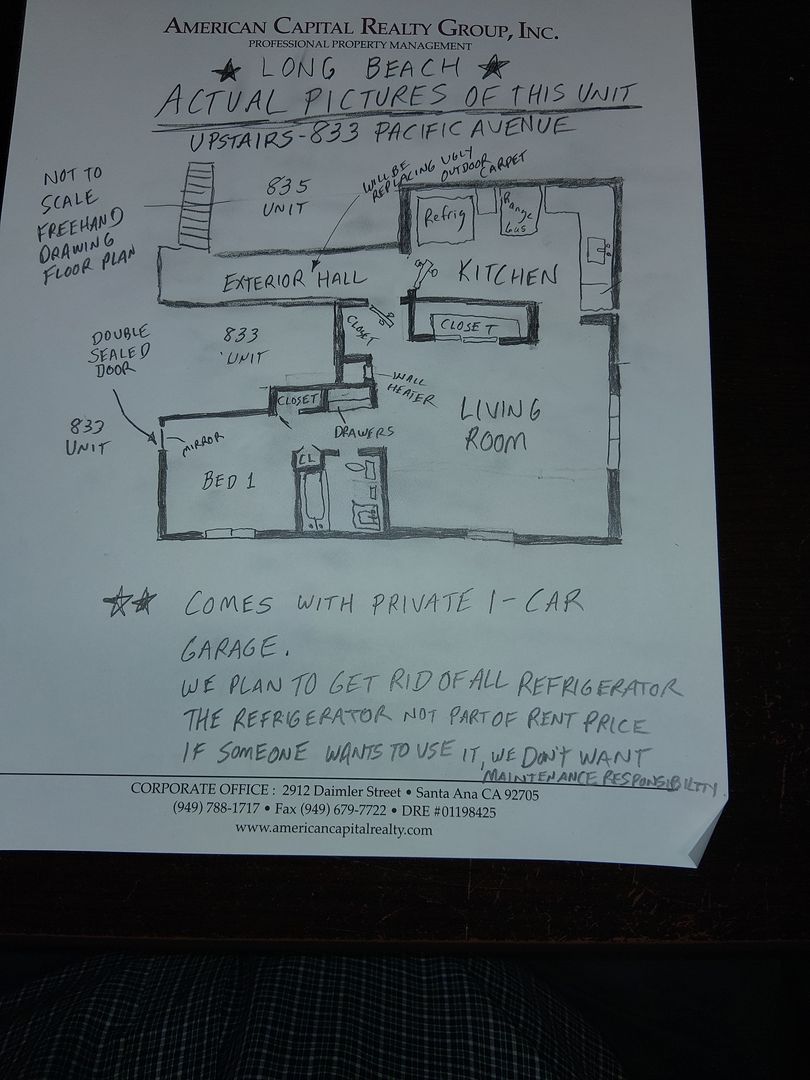 AMERICAN CAPITAL REALTY GROUP, INC.
PROFESSIONAL PROPERTY MANAGEMENT
★ LONG BEACH ★
ACTUAL PICTURES OF THIS UNIT
UPSTAIRS-833 PACIFIC AVENUE
NOT TO
SCALE
FREEHAND
DRAWING
FLOOR PLAN
835
UNIT
WILL BE
REPLACING UGLY
OUTDOOR
CARPET
Refrig
Range
Gas
EXTERIOR HALL
KITCHEN
DOUBLE
SEALED
DOOR
833
UNIT
CLOSET
CLOSET
WALL
HEATER
CLOSET
DRAWERS
LIVING
ROOM
833
UNIT
MIRROR
BED 1
CL
☆☆ COMES WITH PRIVATE 1-CAR
GARAGE.
WE PLAN TO GET RID OF ALL REFRIGERATOR
THE REFRIGERATOR NOT PART OF RENT PRICE
IF SOMEONE WANTS TO USE IT, WE DON'T WANT
MAINTENANCE RESPONSIBILTTY.
CORPORATE OFFICE : 2912 Daimler Street • Santa Ana CA 92705
(949) 788-1717 • Fax (949) 679-7722 • DRE #01198425
www.americancapitalrealty.com